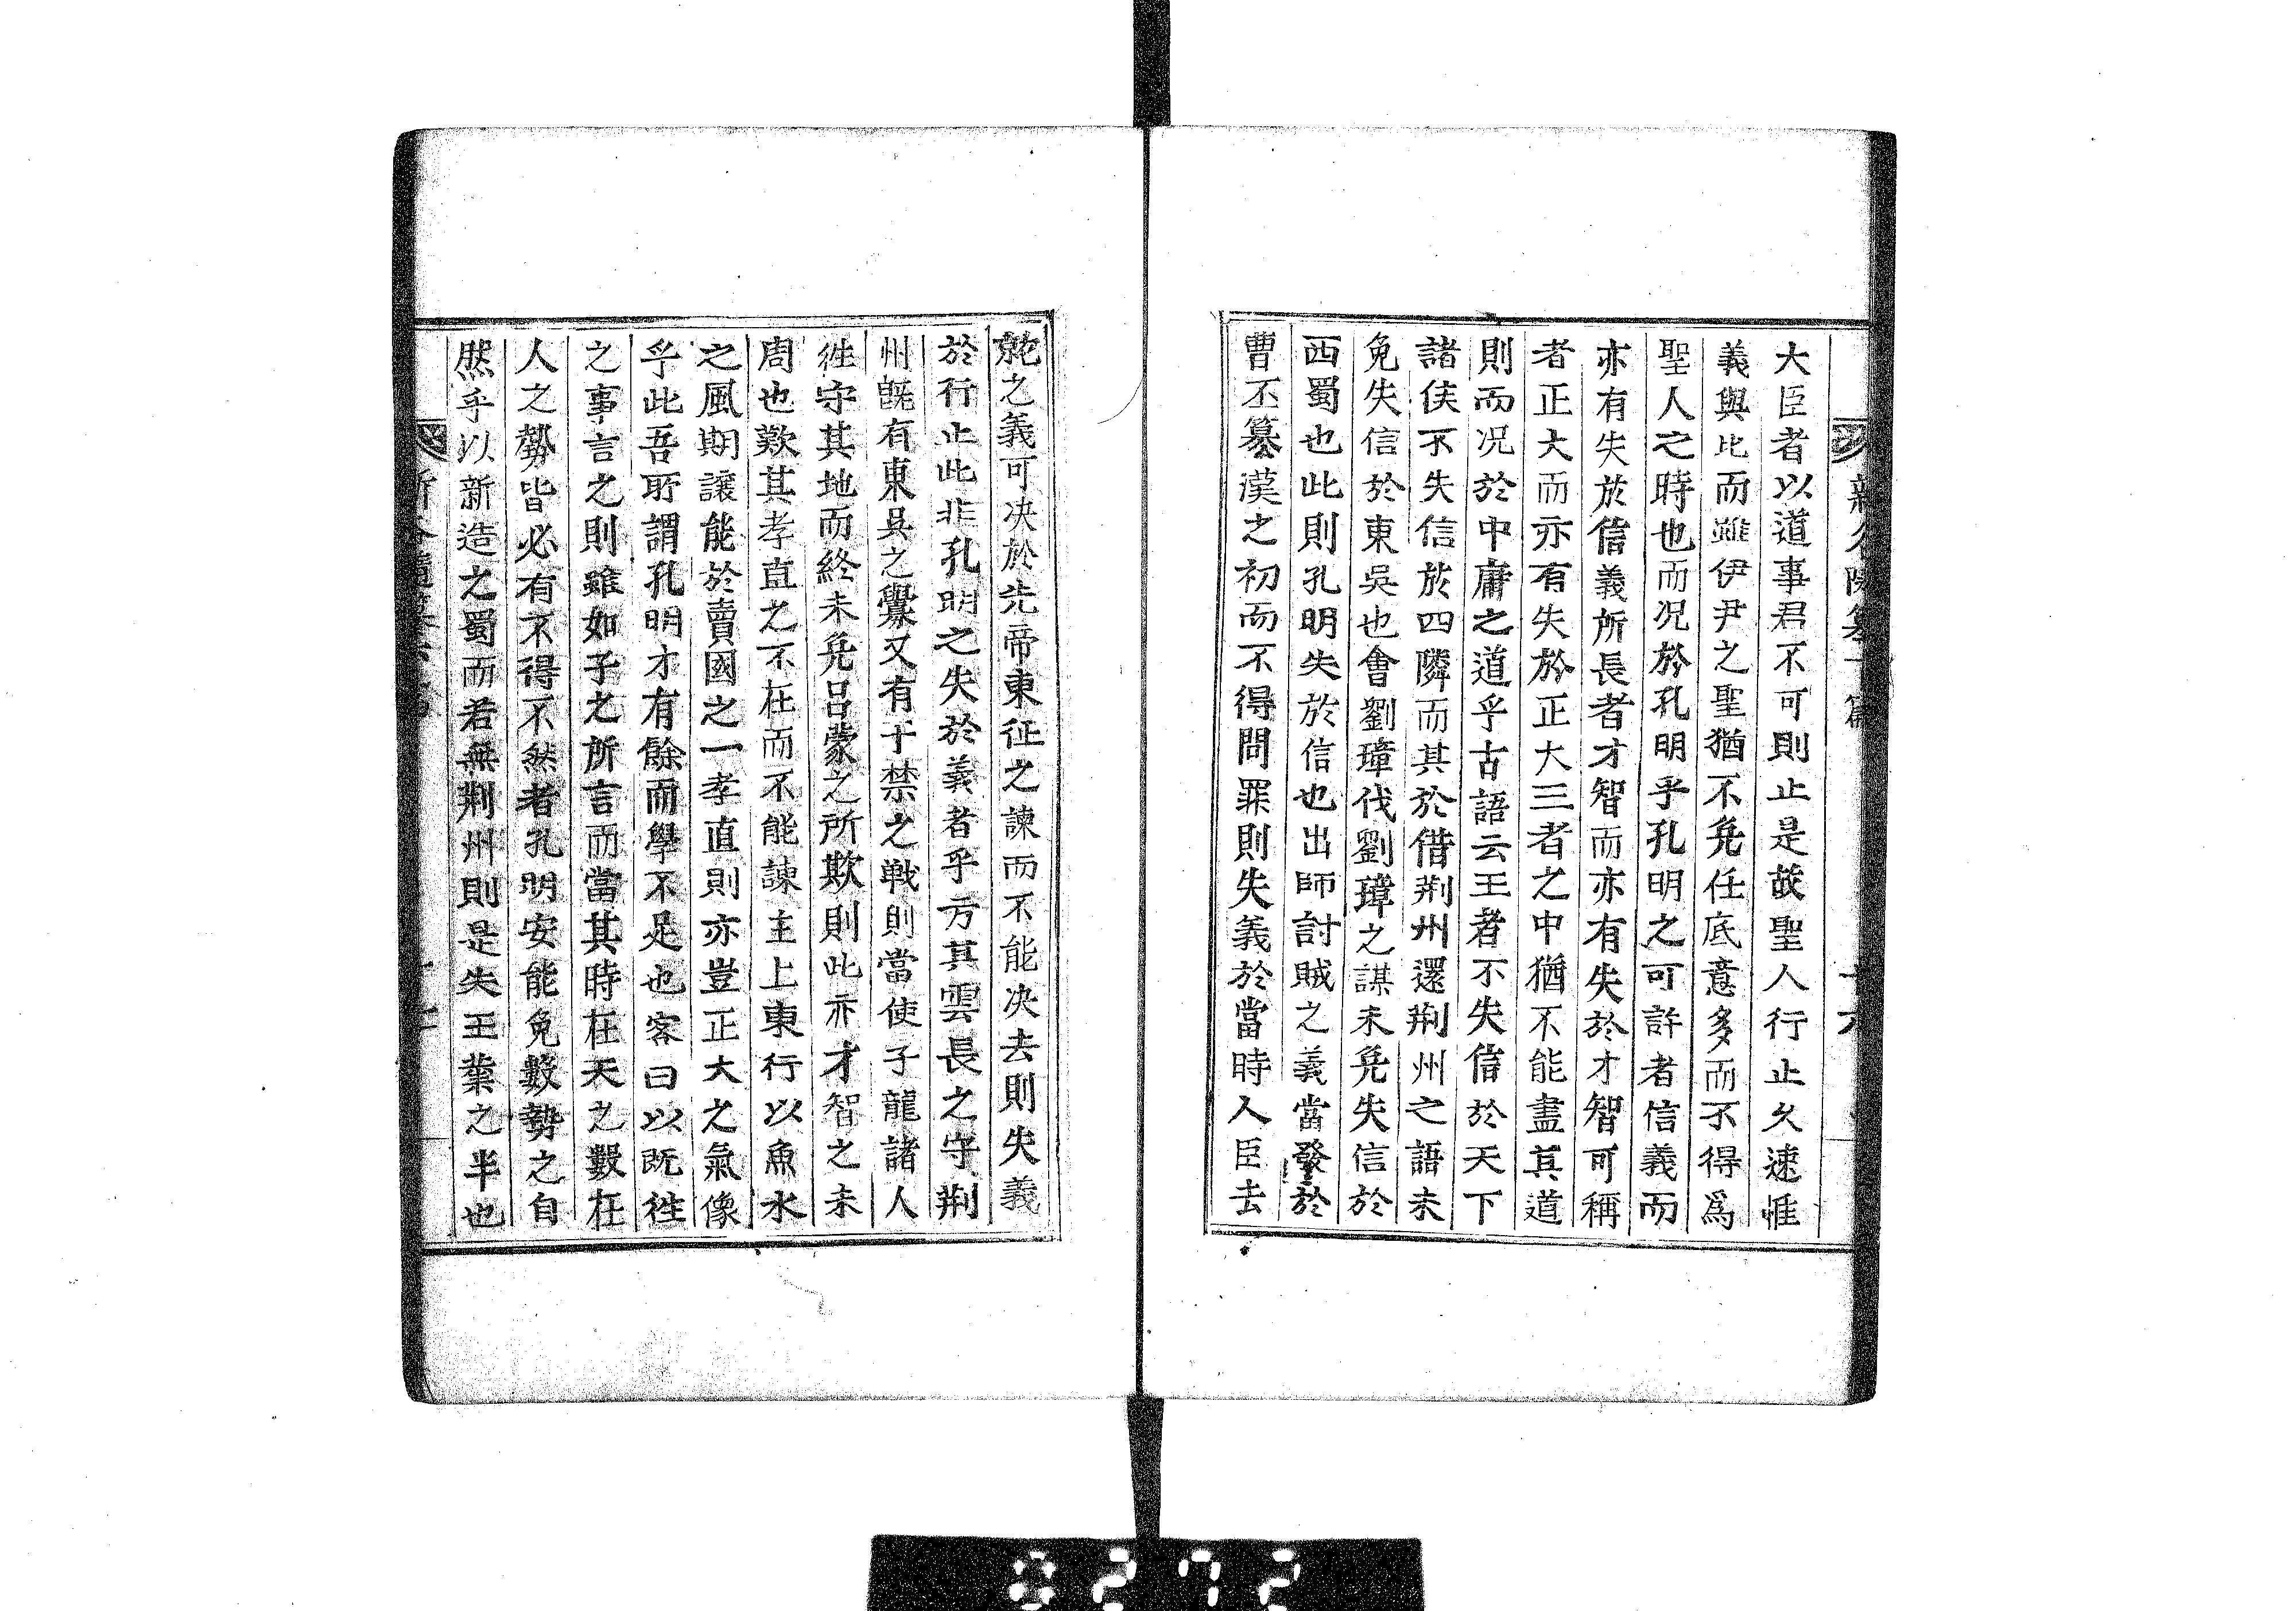 大臣者以道事君不可則止是故聖人行止久速惟
義與比而雖伊尹之聖猶不免任底意多而不得爲
聖人之時也而况於孔明乎孔明之可許者信義而
亦有失於信義所長者才智而亦有失於才智可稱
者正大而亦有失於正大三者之中猶不能盡其道
則而况於中庸之道乎古語云王者不失信於天下
諸侯不失信於四隣而其於借荆州還荆州之語未
免失信於東吳也會劉璋伐劉璋之謀未免失信於
西蜀也此則孔明失於信也出師討賊之義當發於
曹丕簒漢之初而不得問罪則失義於當時人臣去
就之義可决於先帝東征之諫而不能决去則失義
於行止此非孔明之失於義者乎方其雲長之守荆
州旣有東吳之釁又有于禁之戰則當使子龍諸人
徃守其地而終未免呂蒙之所欺則此亦才智之未
周也歎其孝直之不在而不能諫主上東行以魚水
之風期讓能於賣國之一孝直則亦豈正大之氣像
乎此吾所謂孔明才有餘而學不足也客曰以旣徃
之事言之則雖如子之所言而當其時在天之數在
人之勢皆必有不得不然者孔明安能免數勢之自
然乎以新造之蜀而若無荆州則是失王業之半也